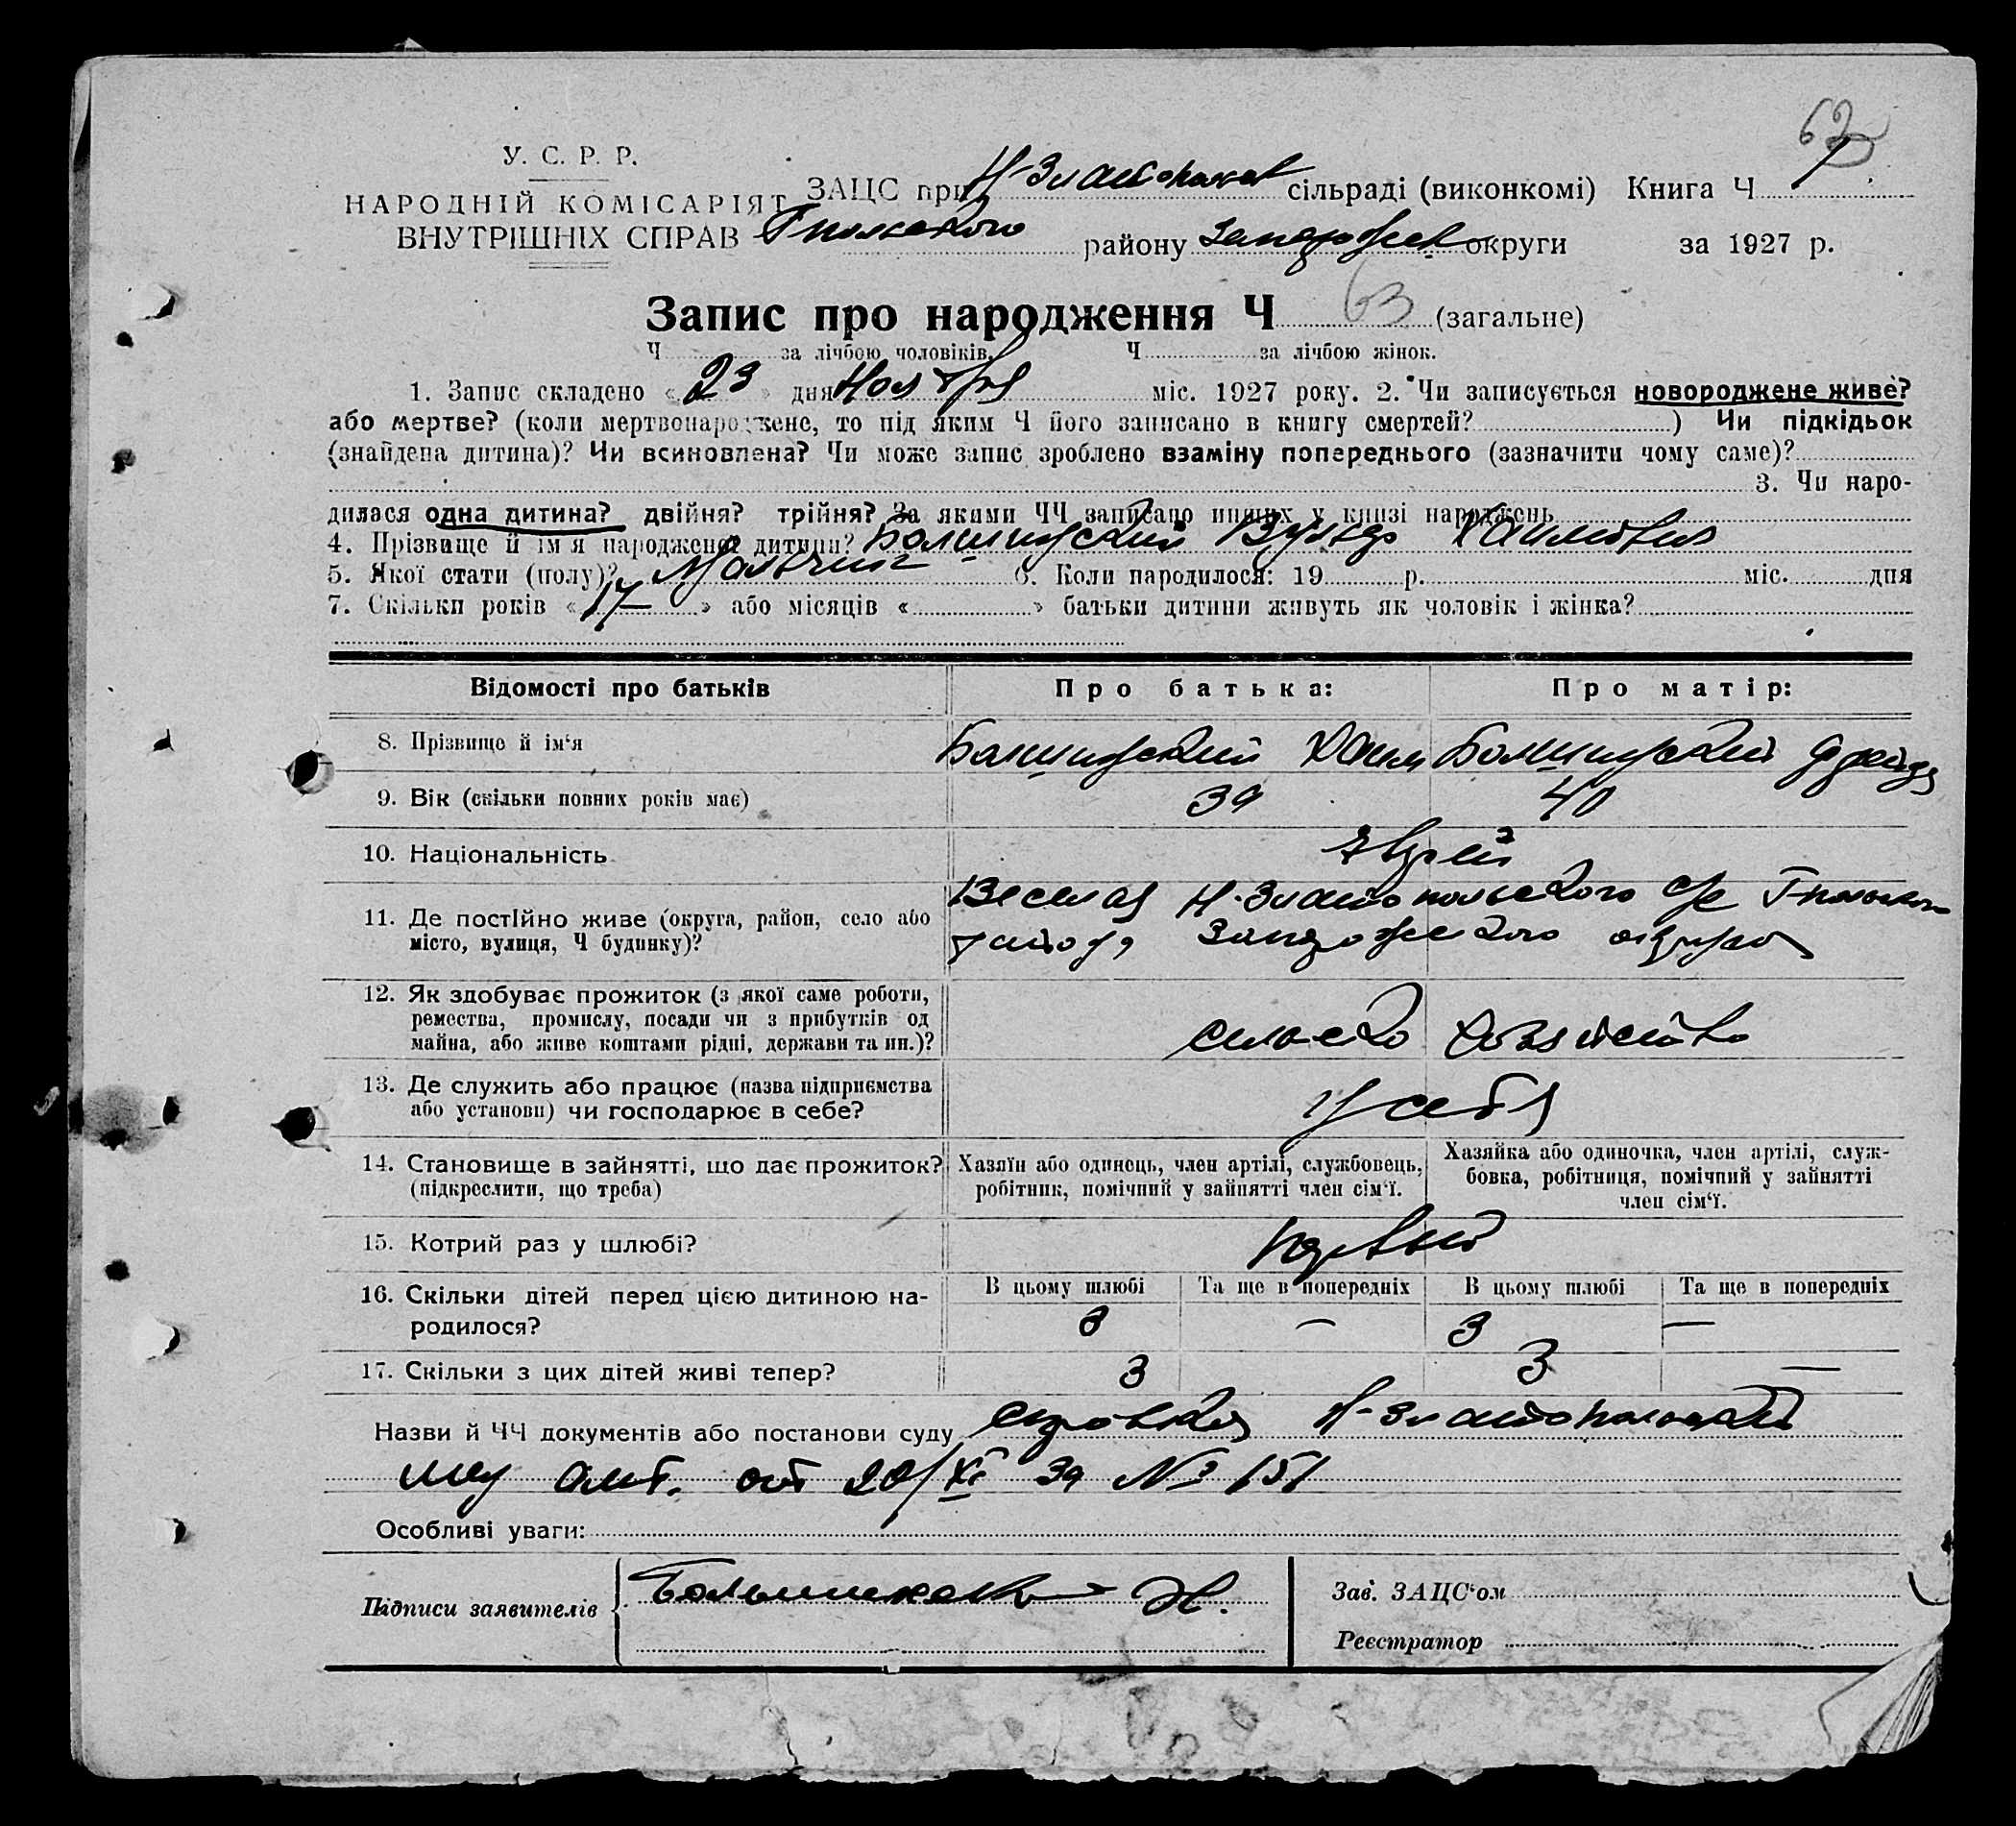 62
У. С. Р. Р.
НАРОДНІЙ КОМІСАРІЯТ
ВНУТРІШНІХ СПРАВ
ЗАЦС при Н-Златопольск сільраді (виконкомі) Книга Ч
Гпольского району Запорожск округи за 1927 р.
Запис про народження Ч 63 (загальне)
Ч за лічбою чоловіків. Ч за лічбою жінок.
1. Запис складено « 23 » дня Ноября міс. 1927 року. 2. Чи записується новороджене живе?
або мертве? (коли мертвонароджене, то під яким Ч його записано в книгу смертей? ) Чи підкідьок
(знайдена дитина)? Чи всиновлена? Чи може запис зроблено взаміну попереднього (зазначити чому саме)?
3. Чи наро-
дилася одна дитина? двійня? трійня? За якими ЧЧ записано инших у книзі народжень
4. Прізвище й ім'я народженої дитини? Хаимович
5. Якої стати (полу)? Мальчик 6. Коли народилося: 19 р. міс. дня
7. Скільки років « 17 » або місяців « » батьки дитини живуть як чоловік і жінка?
Відомості про батьків Про батька: Про матір:
8. Прізвище й ім'я Хаим Фрейда
9. Вік (скільки повних років має) 39 40
10. Національність Яврей
11. Де постійно живе (округа, район, село або
місто, вулиця, Ч будинку)?
Веселая Н-Златопольского с/с Гпольского
района Запорожского округа
12. Як здобуває прожиток (з якої саме роботи,
ремества, промислу, посади чи з прибутків од
майна, або живе коштами рідні, держави та ин.)?
сельско хозяйство
13. Де служить або працює (назва підприємства
або установи) чи господарює в себе?
У себя
14. Становище в зайнятті, що дає прожиток?
(підкреслити, що треба)
Хазяїн або одинець, член артілі, службовець,
робітник, помічний у зайнятті член сім'ї.
Хазяйка або одиночка, член артілі, служ-
бовка, робітниця, помічний у зайнятті
член сім'ї.
15. Котрий раз у шлюбі? первый
16. Скільки дітей перед цією дитиною на-
родилося?
В цьому шлюбі Та ще в попередніх В цьому шлюбі Та ще в попередніх
3 — 3 —
17. Скільки з цих дітей живі тепер? 3 3 —
Назви й ЧЧ документів або постанови суду справка Н-Златопольской
мед амб. от 20/XI 39 № 151
Особливі уваги:
Підписи заявителів
Зав. ЗАЦС'ом
Реєстратор